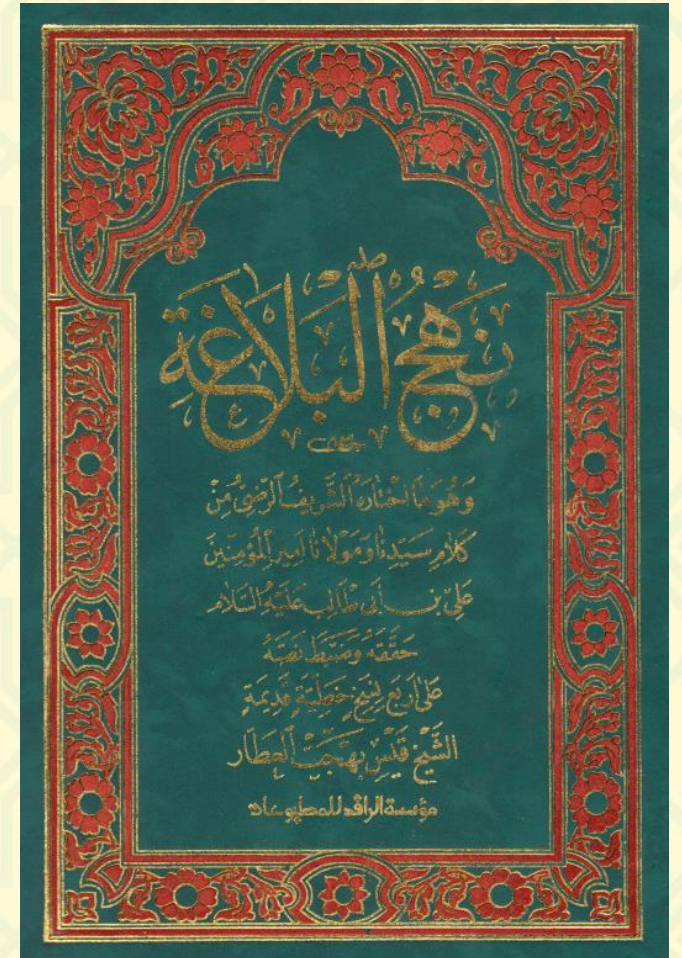 نَهْجُ الْبَلَاغَةِ
وَهُوَ مَا اخْتَارَهُ الشَّرِيفُ الرَّضِيُّ مِنْ
كَلَامِ سَيِّدِنَا وَمَوْلَانَا أَمِيرِ الْمُؤْمِنِينَ
عَلِيِّ بْنِ أَبِي طَالِبٍ عَلَيْهِ السَّلَام
حَقَّقَهُ وَضَبَطَ نَصَّهُ
عَلَى أَرْبَعِ نُسَخٍ خَطِّيَّةٍ قَدِيمَةٍ
الشَّيْخ قَيْس بَهْجَت الْعَطَّار
مؤسسة الرافد للمطبوعات